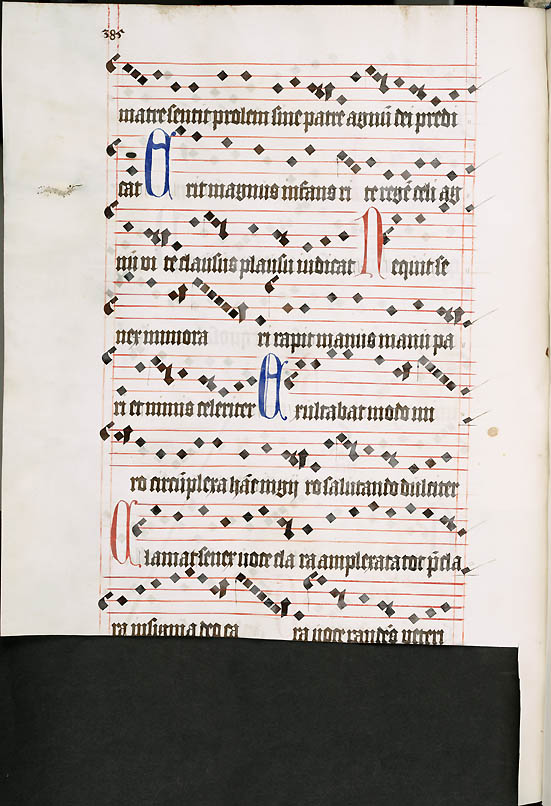 385
matre sentit prolem sine patre agnū dei predi
cat Erit magnus infans iste regē celi ag
mē vite clausus plausu iudicat Nequit se
nex inmorari rapit manus manū pa
ri et munus celeriter Exultabat modo mi
ro circūplexa hāc in gyro salutando dulciter
Clamat senex voce clara amplexata tot p̄cla
ra insignia deo cara